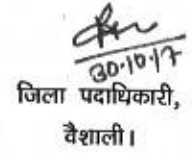 30.10.17
जिला पदाधिकारी,
वैशाली।